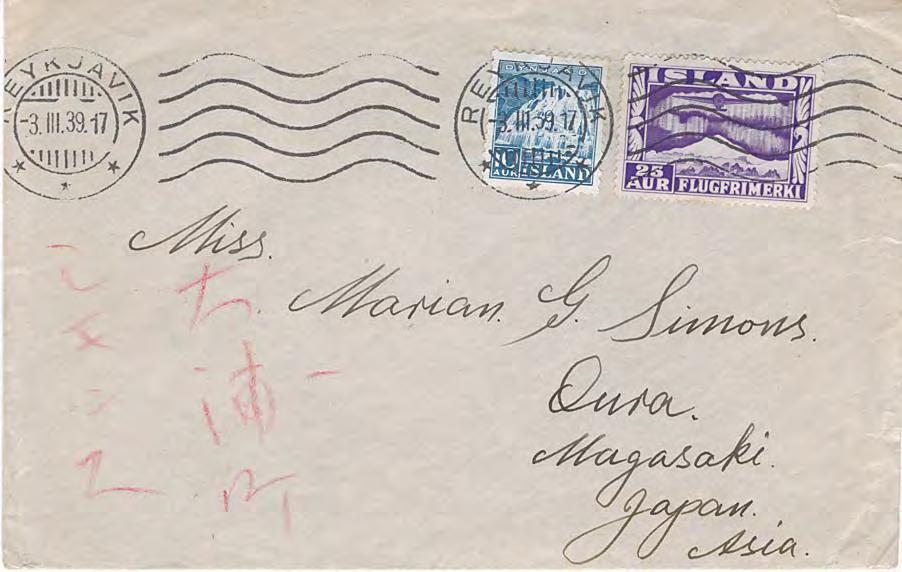 REYKJAVIK
-3.III.39.-17
REYKJAVIK
-3.III.39.17
DYNJANDI
10
AUR ÍSLAND
ÍSLAND
25
AUR FLUGFRIMERKI
Miss.
Marian. G. Simons.
Oura.
Magasaki.
Japan.
Asia.
大浦町
シメンス